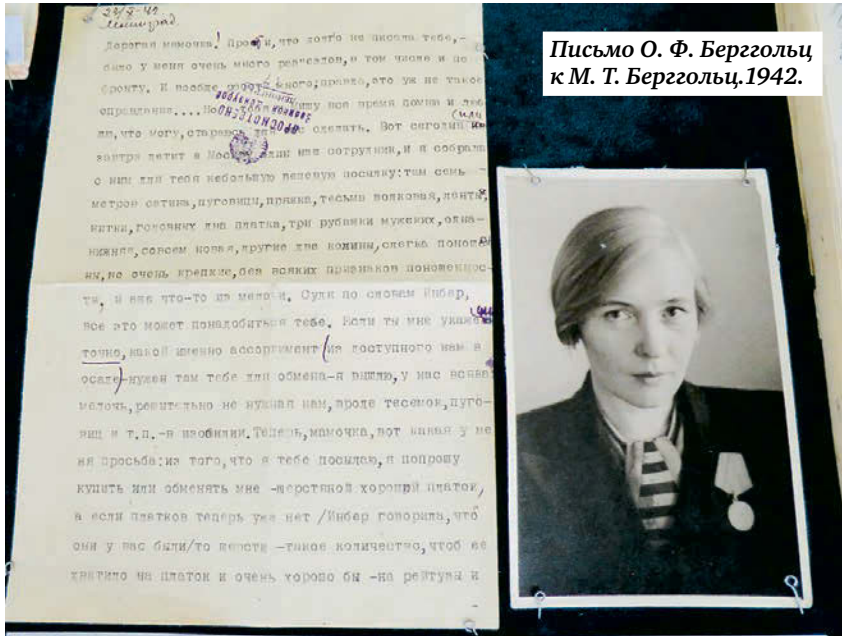 Ленинград.
Дорогая мамочка! Прости, что долго не писала тебе,-
было у меня очень много разъездов, в том числе и по
фронту. И вообще много; правда, это уж не такое
оправдание.... Но все время помню и
что могу, стараюсь для сделать. Вот сегодня
завтра летит в Москву один наш сотрудник, и я собрала
с ним для тебя небольшую вещевую посылку: там семь
метров сатина, пуговицы, пряжа, тесьма шелковая, ленты,
нитки, головных два платка, три рубашки мужских, одна-
нижняя, совсем новая, другие две колины, слегка поноше
ны, но очень крепкие, без всяких признаков поношеннос-
ти, и еще что-то из мелочи. Судя по словам Инбер,
все это может понадобиться тебе. Если ты мне укажешь
точно, какой именно ассортимент (из доступного нам в
осаде)-нужен там тебе для обмена-я вышлю, у нас всяка
мелочь, решительно не нужная нам, вроде тесемок, пуго-
виц и т.п.-в изобилии. Теперь, мамочка, вот какая у ме
ня просьба: из того, что я тебе посылаю, я попрошу
купить или обменять мне -шерстяной хороший платок,
а если платков теперь уже нет /Инбер говорила, что
они у вас были/то шерсти -такое количество, чтоб ее
хватило на платок и очень хорошо бы -на рейтузы и
ПРОСМОТРЕНО
Военной Цензурой
Письмо О. Ф. Берггольц
к М. Т. Берггольц.1942.